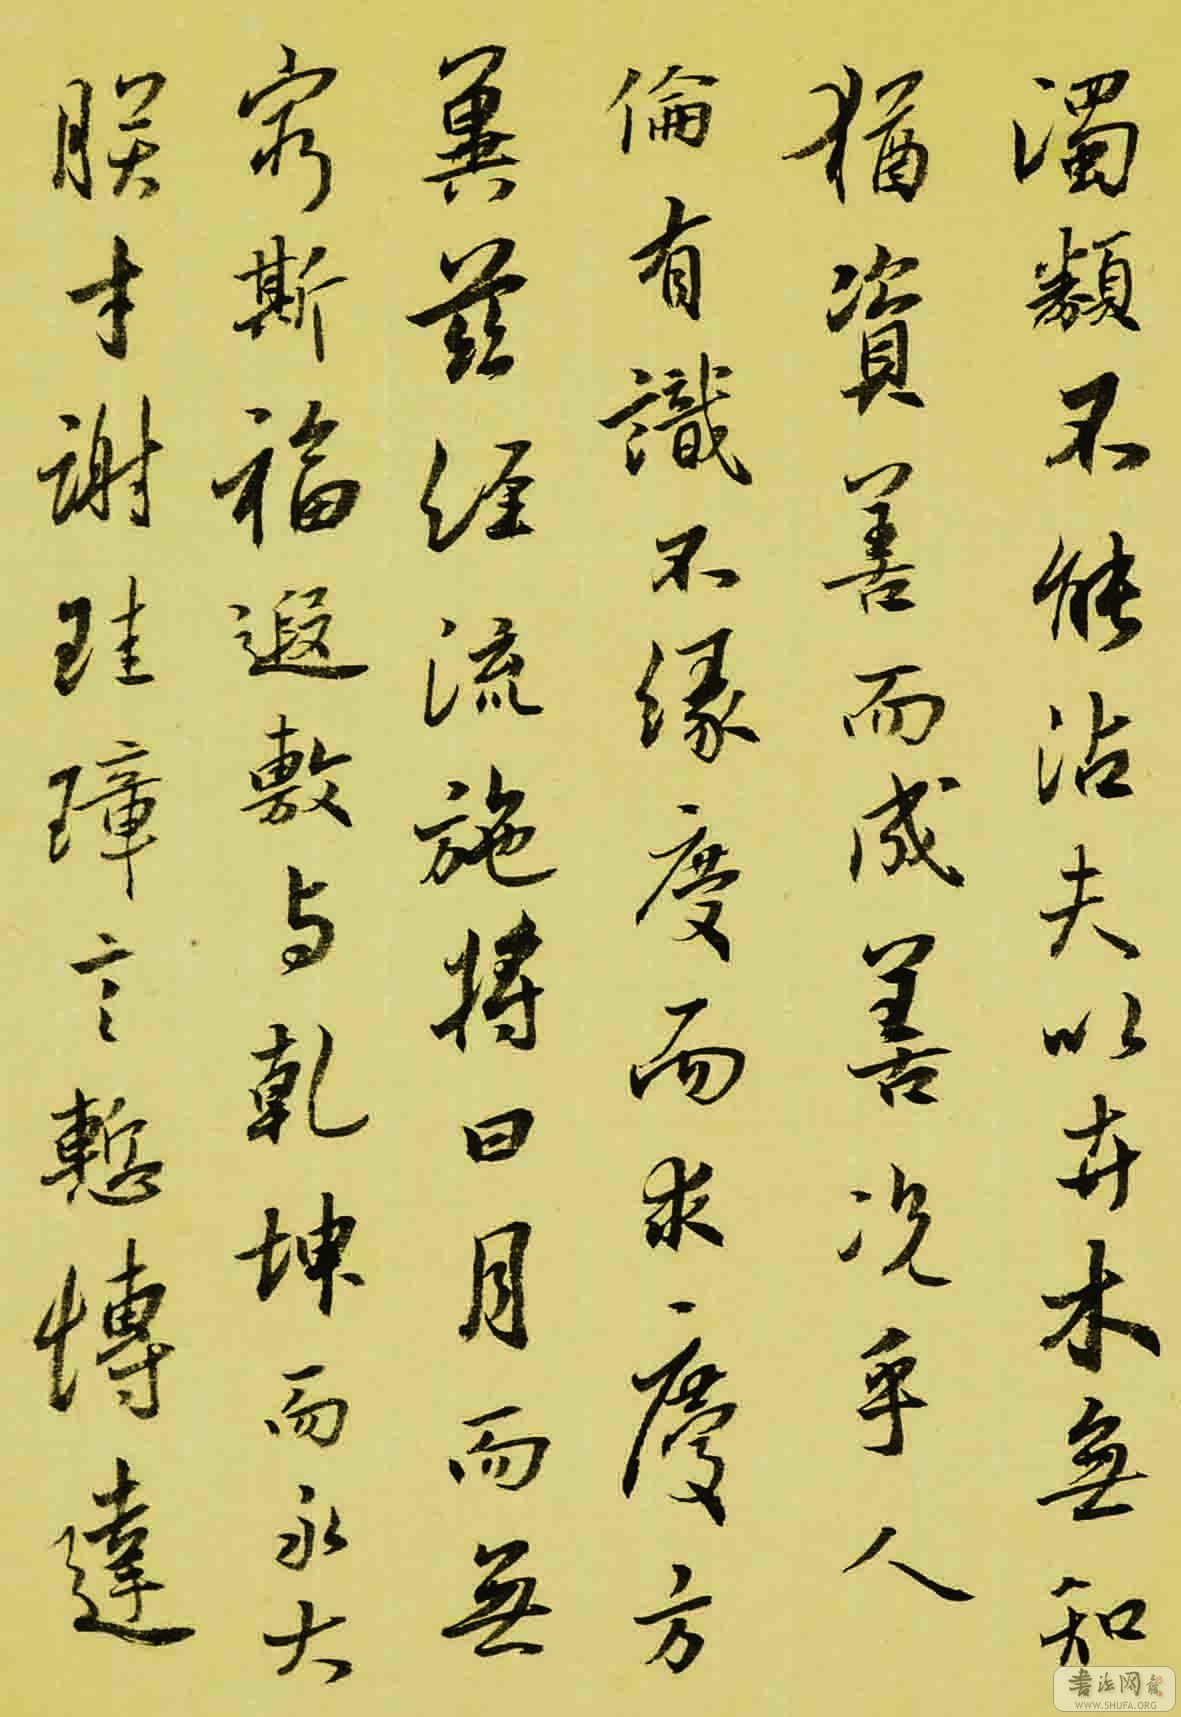 濁類不能沾夫以卉木無知
猶資善而成善況乎人
倫有識不緣慶而求慶方
冀茲經流施將日月而無
窮斯福遐敷与乾坤而永大
朕才謝珪璋言慙博達
書法网
WWW.SHUFA.ORG